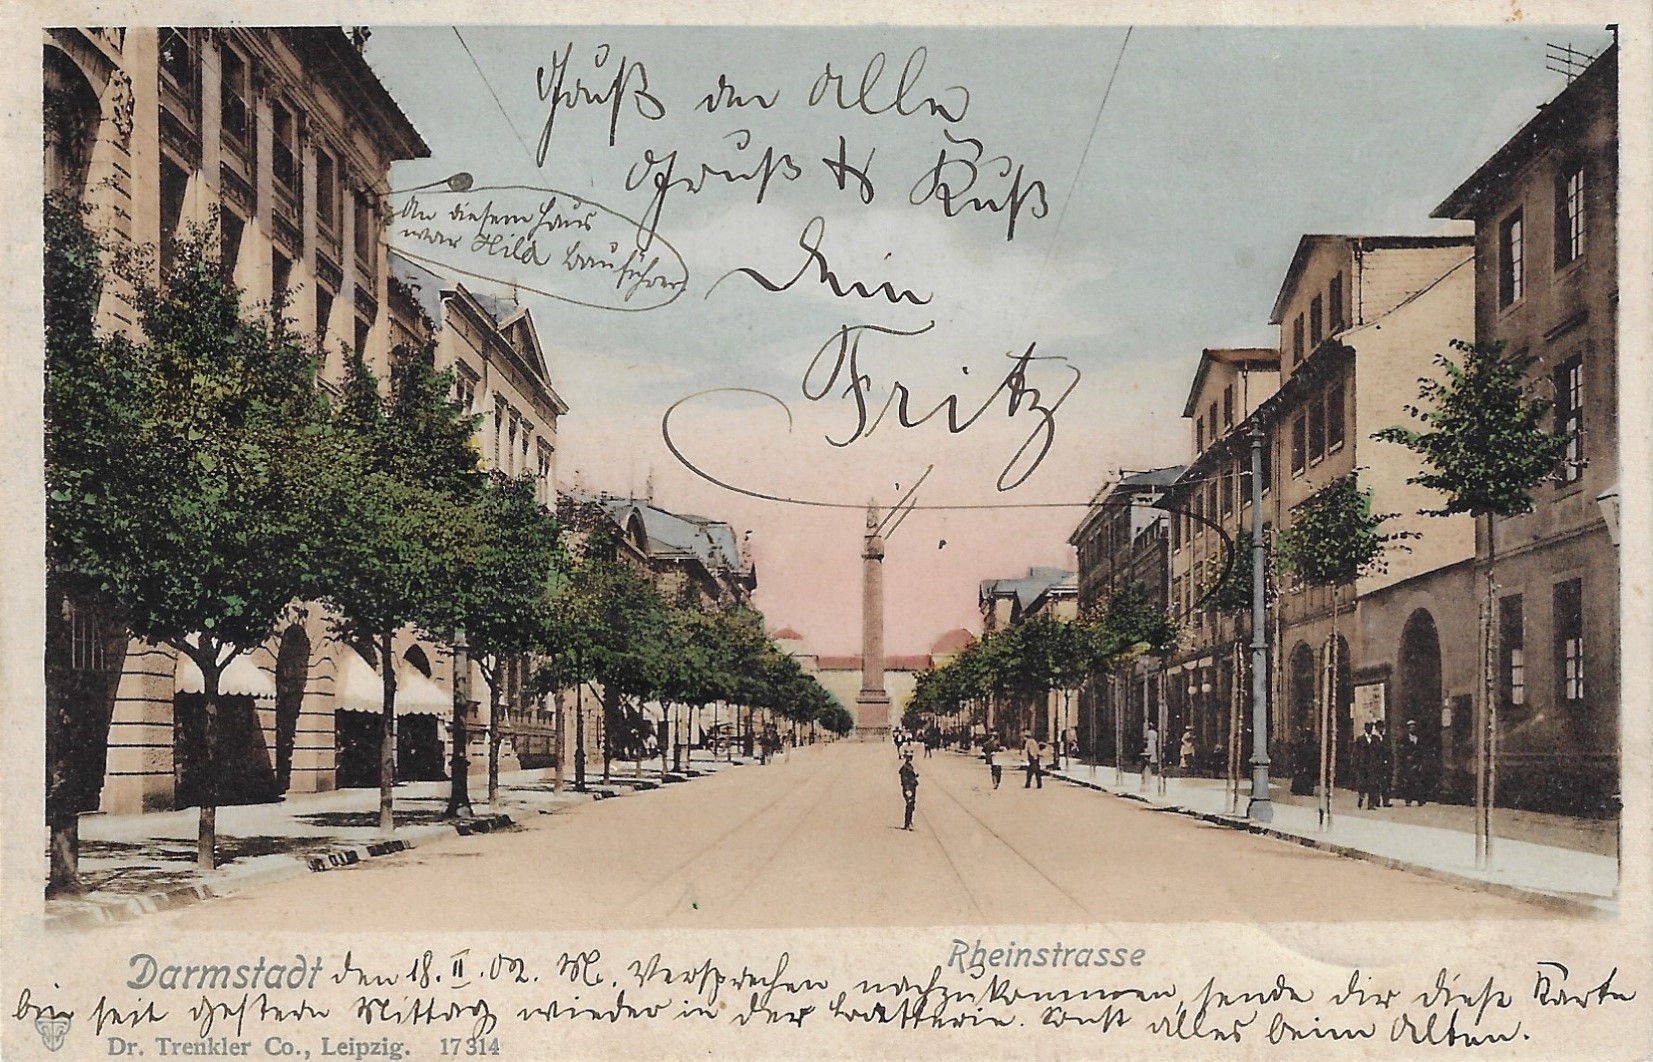 Gruß an Alle
Gruß & Kuß
An diesem Haus
war Hild Bauführer
Dein
Fritz
Rheinstrasse
Darmstadt den 18. II. 02. M. Versprechen nachzukommen, sende dir diese Karte
bin seit gestern Mittag wieder in der Batterie. Sonst alles beim Alten.
Dr. Trenkler Co., Leipzig. 17314